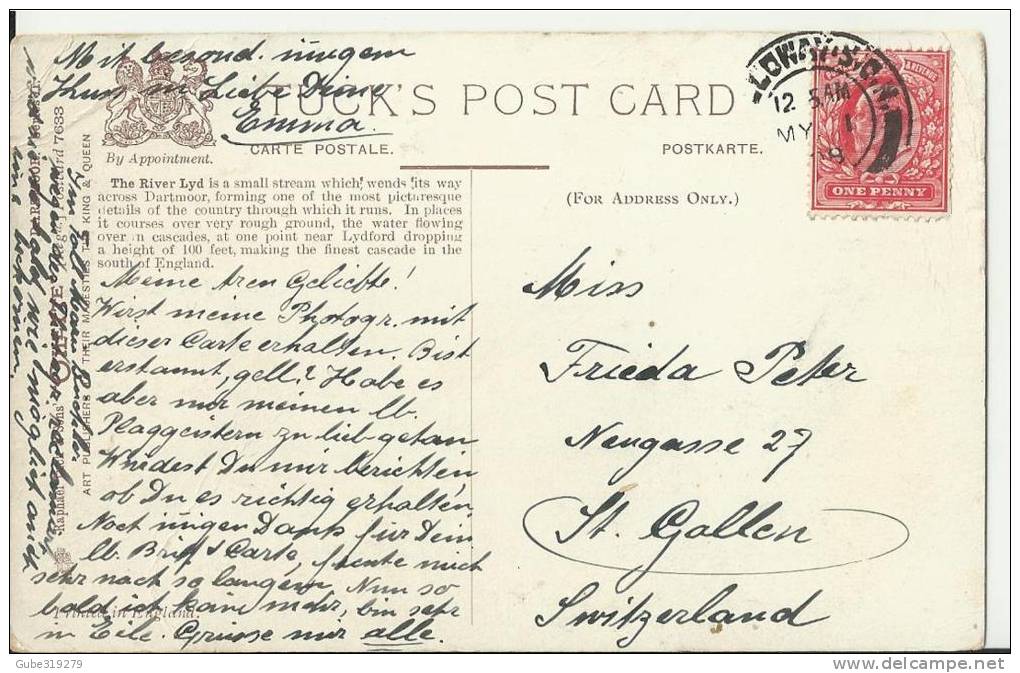 Mit besond. innigem
Kuss in Liebe Deine
Emma.
TUCK'S POST CARD
By Appointment.
CARTE POSTALE.
POSTKARTE.
The River Lyd is a small stream which wends its way
across Dartmoor, forming one of the most picturesque
details of the country through which it runs. In places
it courses over very rough ground, the water flowing
over in cascades, at one point near Lydford dropping
a height of 100 feet, making the finest cascade in the
south of England.
(FOR ADDRESS ONLY.)
12 AM
MY 1
ONE PENNY
Meine Geliebte!
Wirst meine Photogr. mit
dieser Carte erhalten. Bist
erstaunt, gell? Habe es
aber nur meinen lb.
Plaggeistern zu lieb getan
Würdest Du mir berichten
ob Du es richtig erhalten.
Noch innigen Dank für Dein
lb. Brief & Carte, freute mich
sehr nach so langem. Nun so
bald ich kann mehr, bin sehr
in Eile. Grüsse mir alle.
Miss
Frieda Peter
Neugasse 27
St. Gallen
Switzerland
Printed in England.
ART PUBLISHERS TO THEIR MAJESTIES THE KING & QUEEN
Postcard 7633
Raphael Tuck & Sons'
wie möglich auch
ein's bekommen.
Gube319279
www.delcampe.net